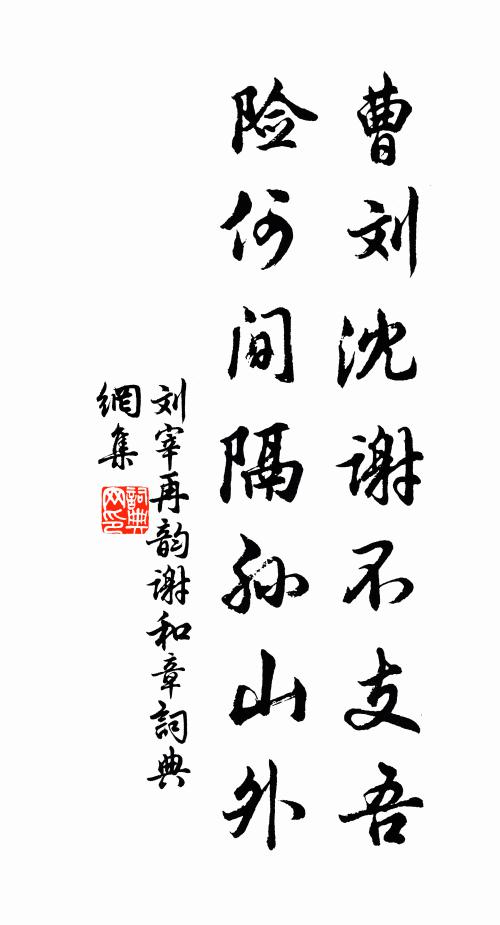 曹刘沈谢不支吾
险何间隔孙山外
刘宰再韵谢和章詞典
網集
詞典网印